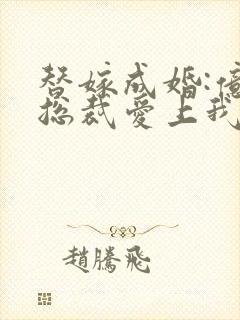 替嫁成婚:億
總裁愛上我
趙騰飛